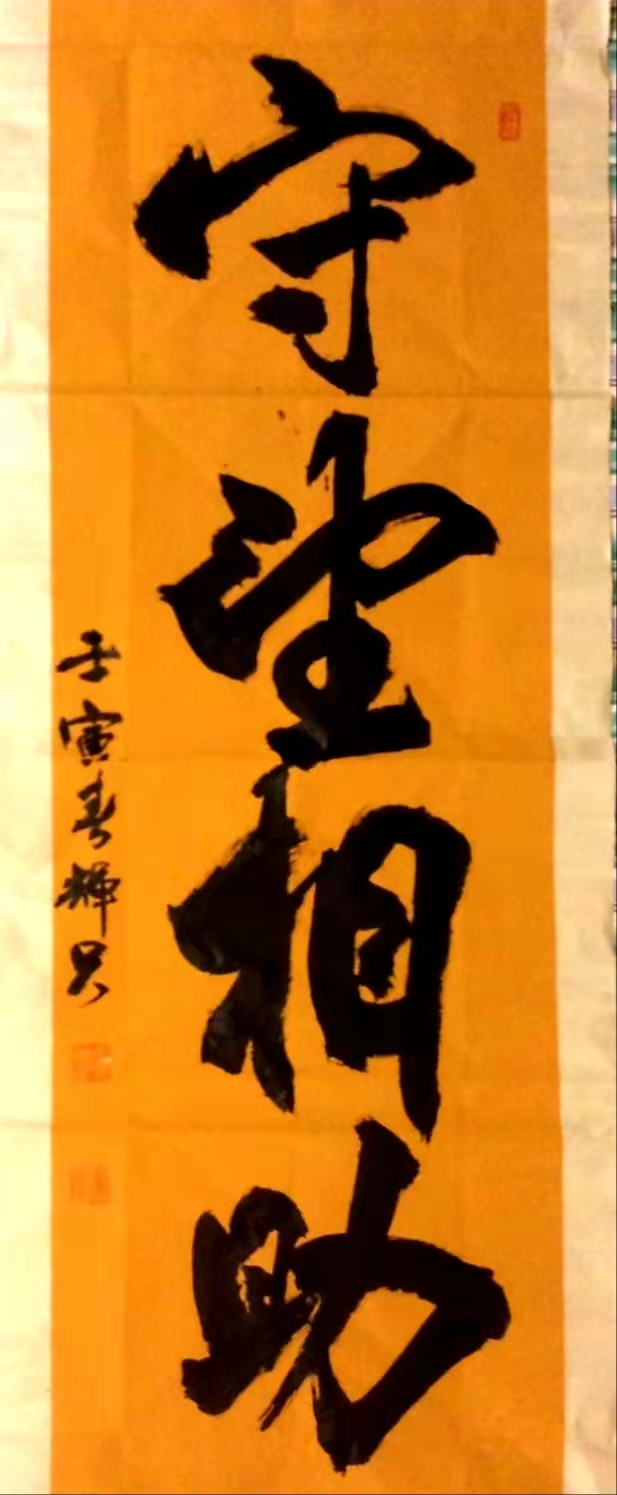 守望相助
壬寅春輝只